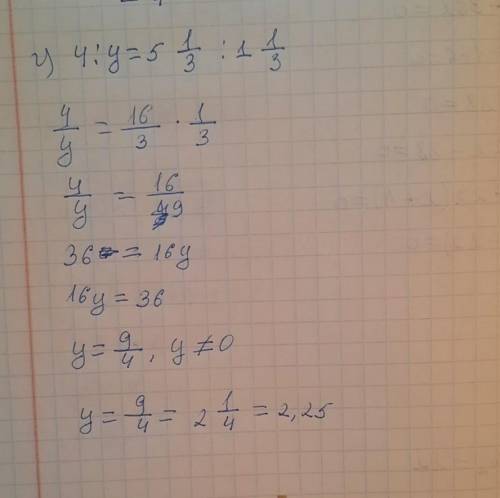 г) 4:y = 5 1/3 : 1 1/3
4/y = 16/3 · 1/3
4/y = 16/9
36 = 16y
16y = 36
y = 9/4, y ≠ 0
y = 9/4 = 2 1/4 = 2,25